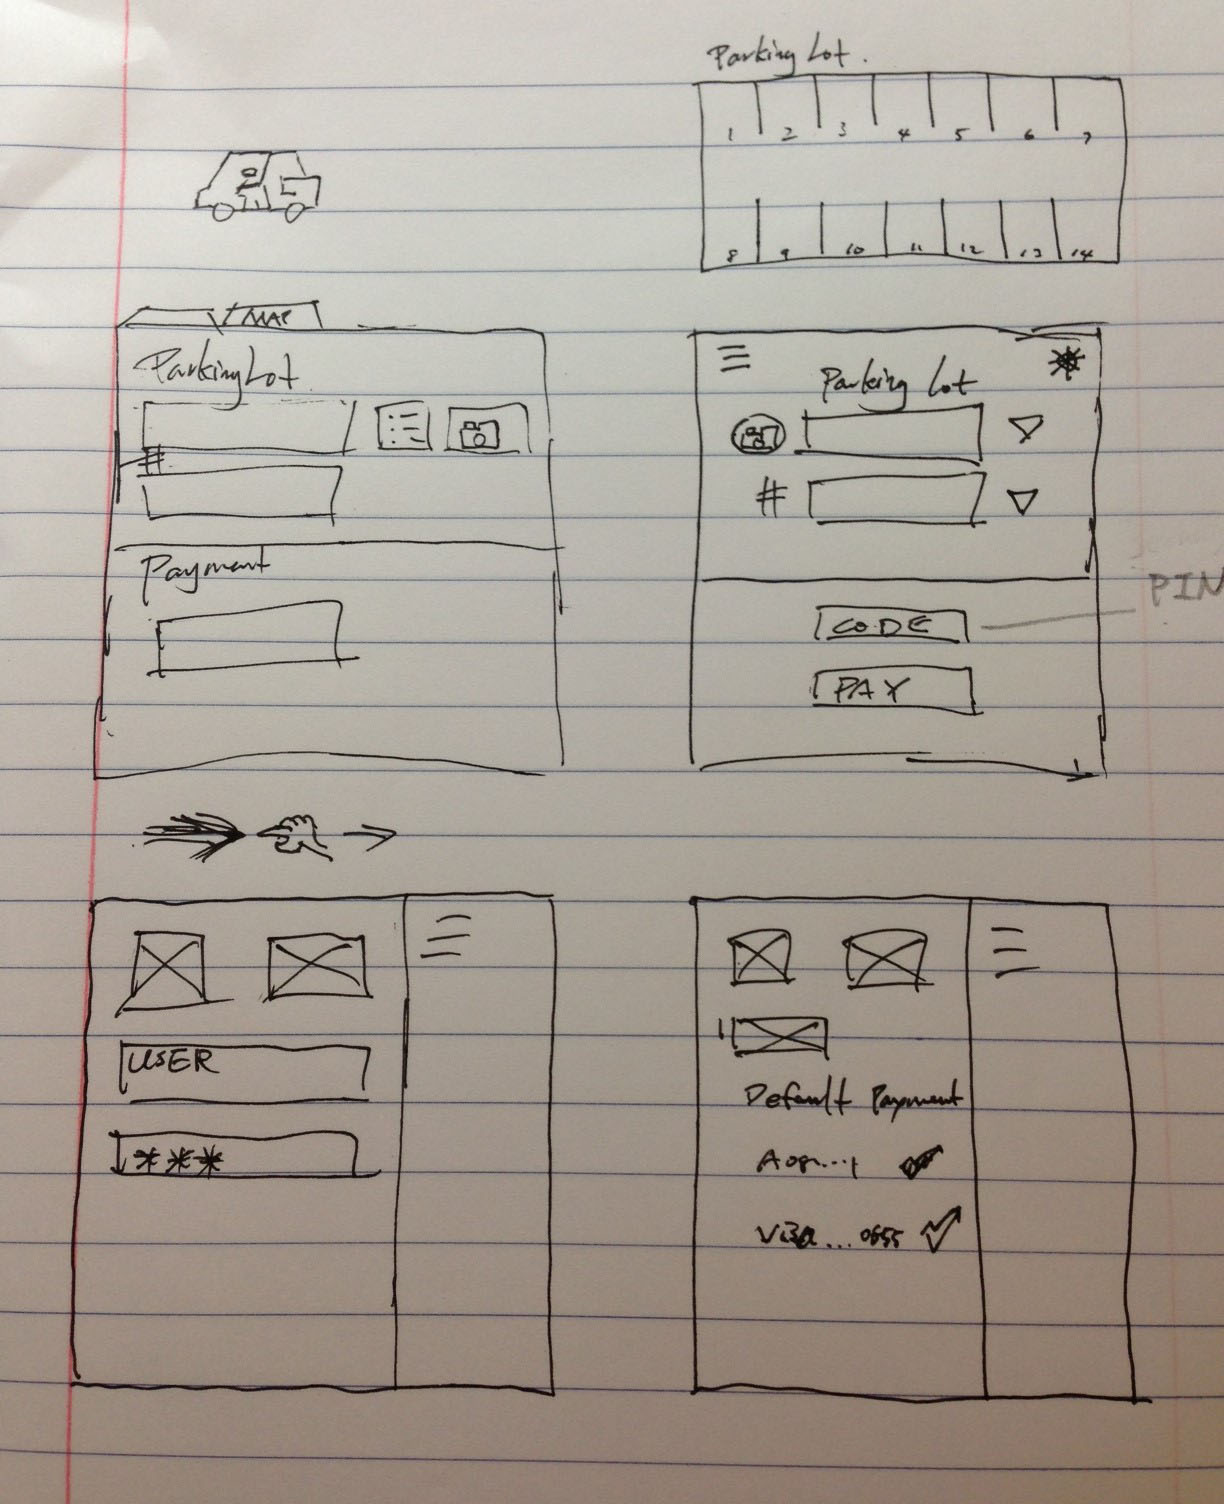 Parking Lot.
1 2 3 4 5 6 7
8 9 10 11 12 13 14
MAP
Parking Lot
#
Payment
Parking Lot
#
CODE
PIN
PAY
USER
***
Default Payment
Visa ... 0655